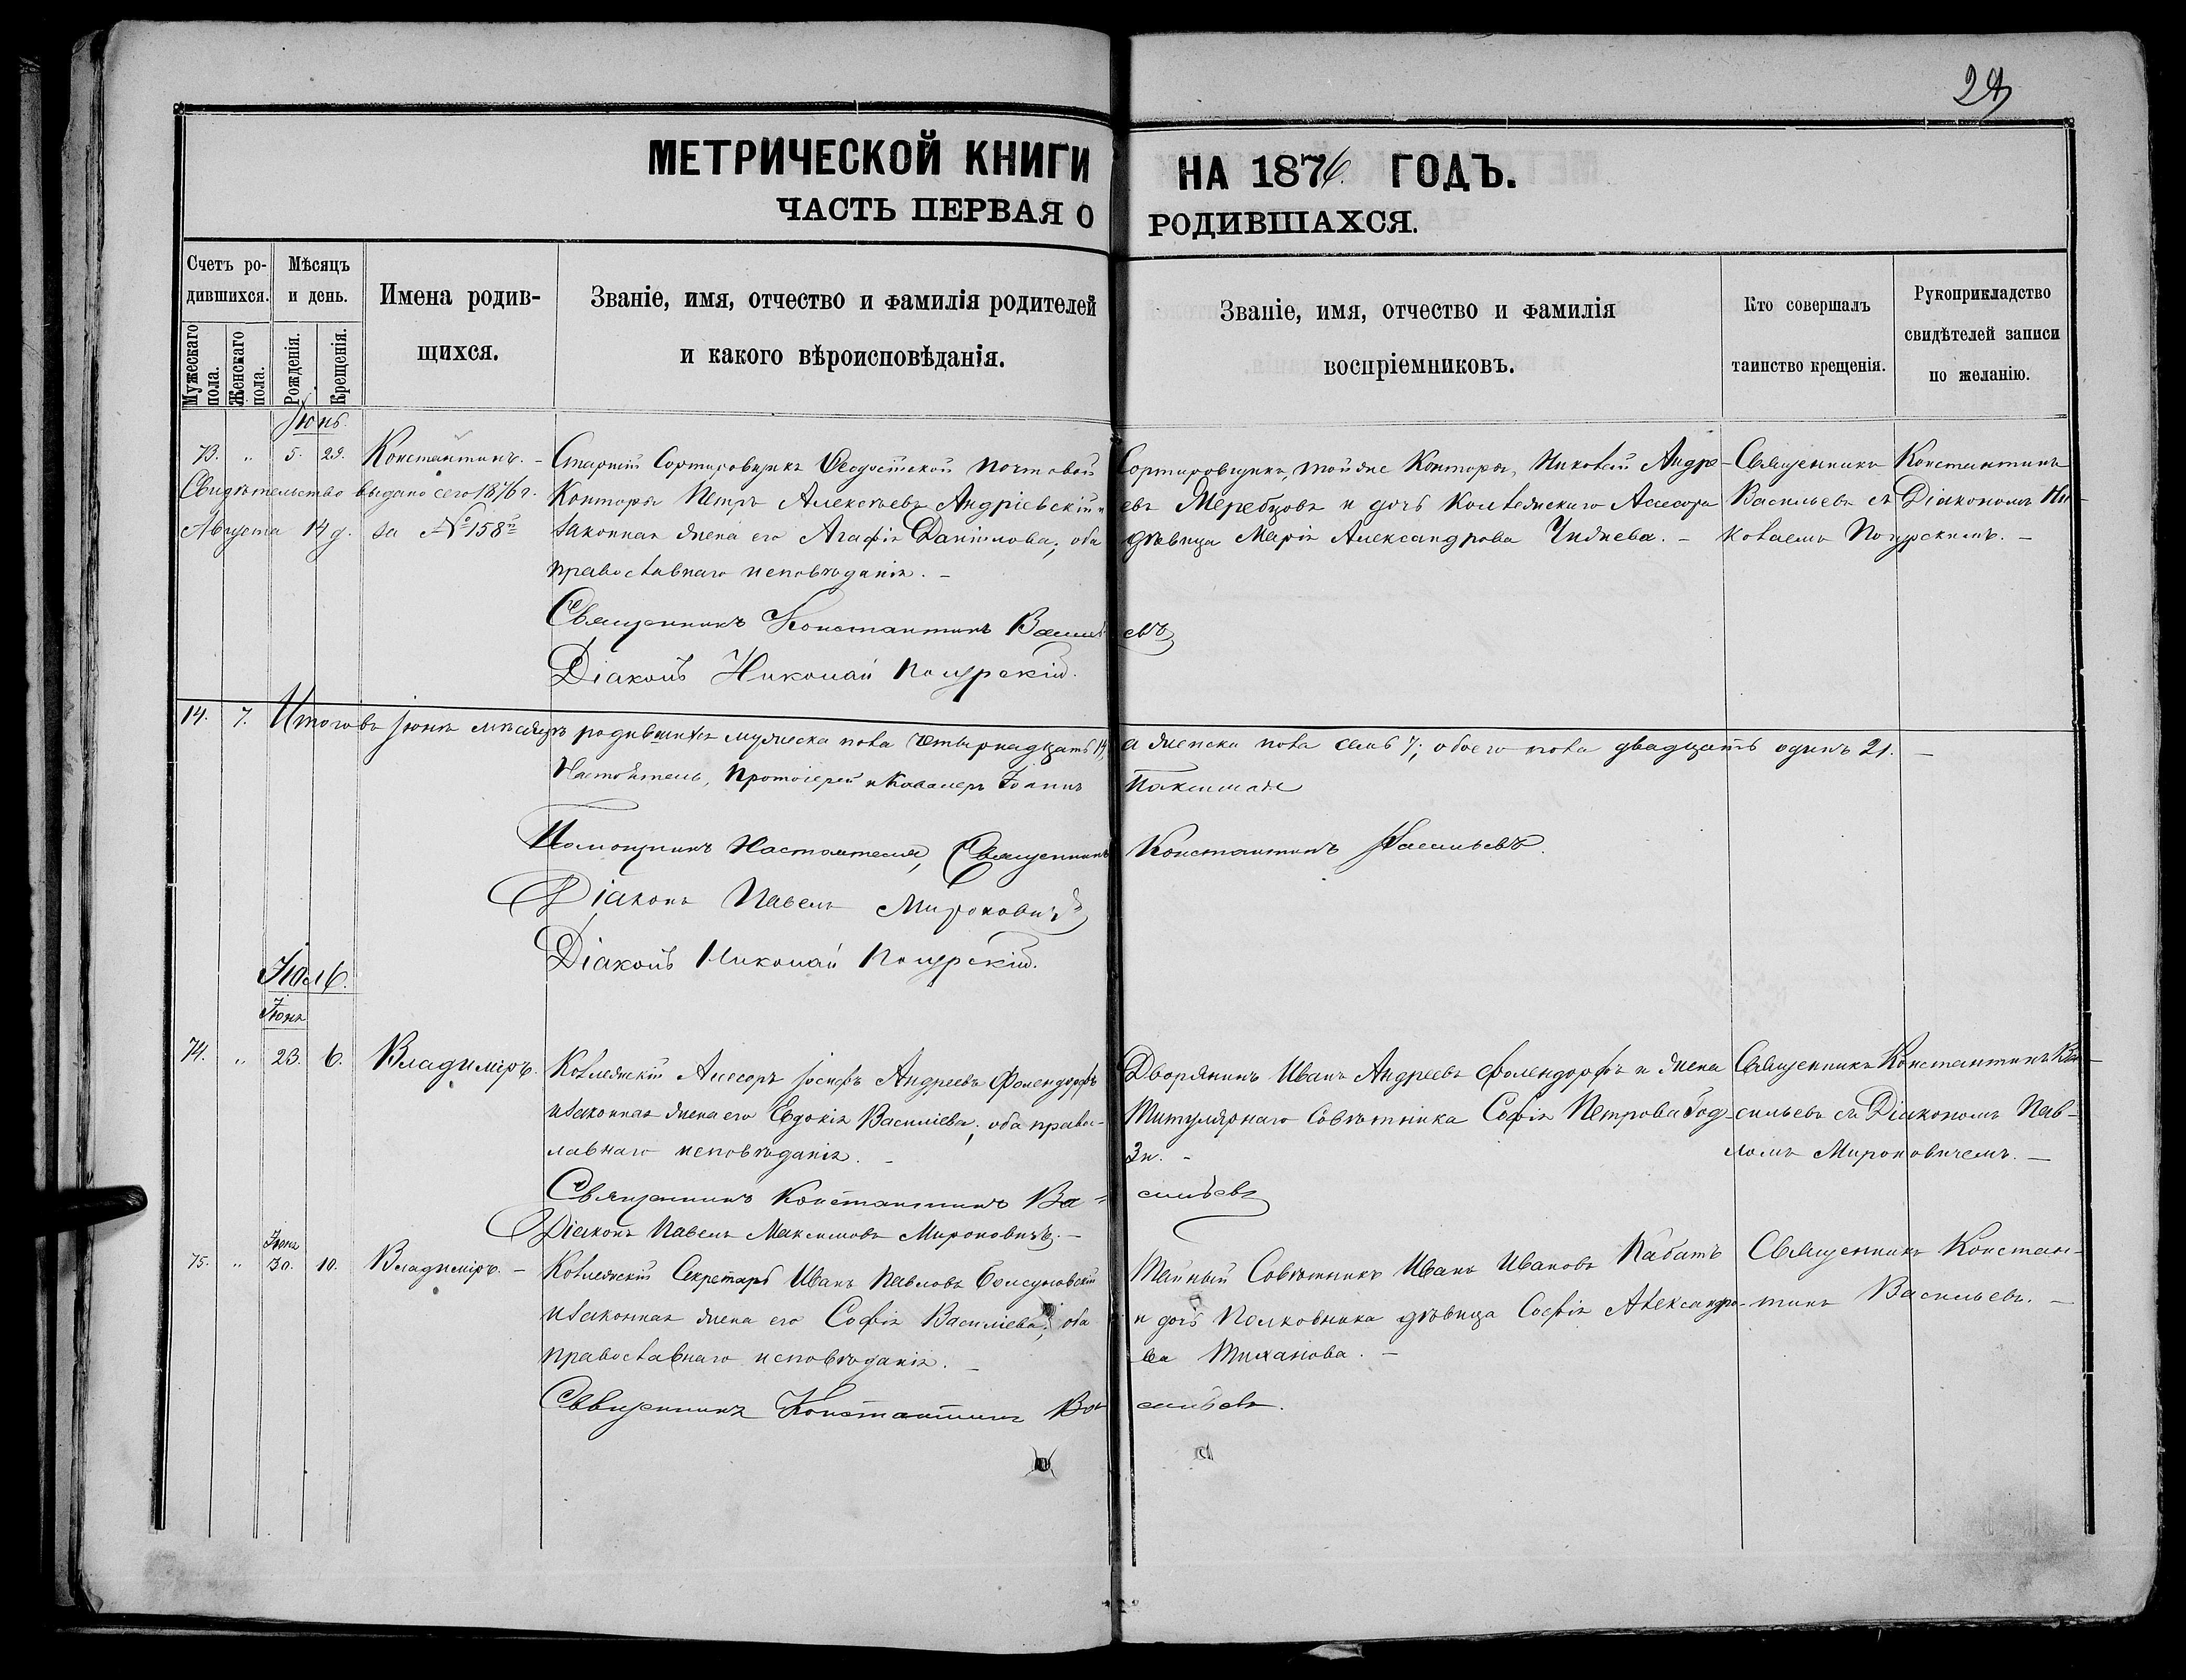 29
МЕТРИЧЕСКОЙ КНИГИ НА 1876 ГОДЪ.
ЧАСТЬ ПЕРВАЯ О РОДИВШАХСЯ.
Счетъ родившихся.
Мужескаго пола.
Женскаго пола.
Мѣсяцъ и день.
Рожденія.
Крещенія.
Имена родившихся.
Званіе, имя, отчество и фамилія родителей
и какого вѣроисповѣданія.
Званіе, имя, отчество и фамилія
воспріемниковъ.
Кто совершалъ
таинство крещенія.
Рукоприкладство
свидѣтелей записи
по желанію.
Іюнь.
73. " 5. 29. Константинъ. - Старшій Сортировщикъ Ѳеодосійской Почтовой Сортировщикъ, тойже Конторы, Николай Андре- Священникъ Константинъ
Свидѣтельство выдано сего 1876 г. Конторы Петръ Алексѣевъ Андріевскій и евъ Меребцовъ и дочь Коллежскаго Ассесора Васильевъ съ Діакономъ Ни-
Августа 14 д. за № 158й законная жена его Агафія Даніилова; оба дѣвица Марія Александрова Чижнева. - колаемъ Полурскимъ. -
православнаго исповѣданія. -
Священникъ Константинъ Васильевъ
Діаконъ Николай Полурскій.
14. 7. Итого въ Іюнѣ мѣсяцѣ родившихся мужеска пола четырнадцать 14, а женска пола семь 7; обоего пола двадцать одинъ 21. -
Настоятель, Протоіерей и Кавалеръ Іоаннъ
Помощникъ Настоятеля, Священникъ Константинъ Васильевъ.
Діаконъ Павелъ Мироновичъ
Діаконъ Николай Полурскій.
Іюль.
Іюня
74. " 23. 6. Владиміръ. Коллежскій Ассесоръ Іосифъ Андреевъ Фолендорфъ Дворянинъ Иванъ Андреевъ Фолендорфъ и жена Священникъ Константинъ Ва-
и законная жена его Евдокія Василіева; оба правос- Титулярнаго Совѣтника Софія Петрова Год- сильевъ съ Діакономъ Пав-
лавнаго исповѣданія. - зи. - ломъ Мироновичемъ. -
Священникъ Константинъ Васильевъ
Діаконъ Павелъ Максимовъ Мироновичъ. -
Іюня
75. " 30. 10. Владиміръ. - Коллежскій Секретарь Иванъ Павловъ Болсуновскій Тайный Совѣтникъ Иванъ Ивановъ Кабатъ Священникъ Констан-
и законная жена его Софія Василіева; оба и дочь Полковника дѣвица Софія Александро- тинъ Васильевъ. -
православнаго исповѣданія. - ва Тиханова. -
Священникъ Константинъ Васильевъ.